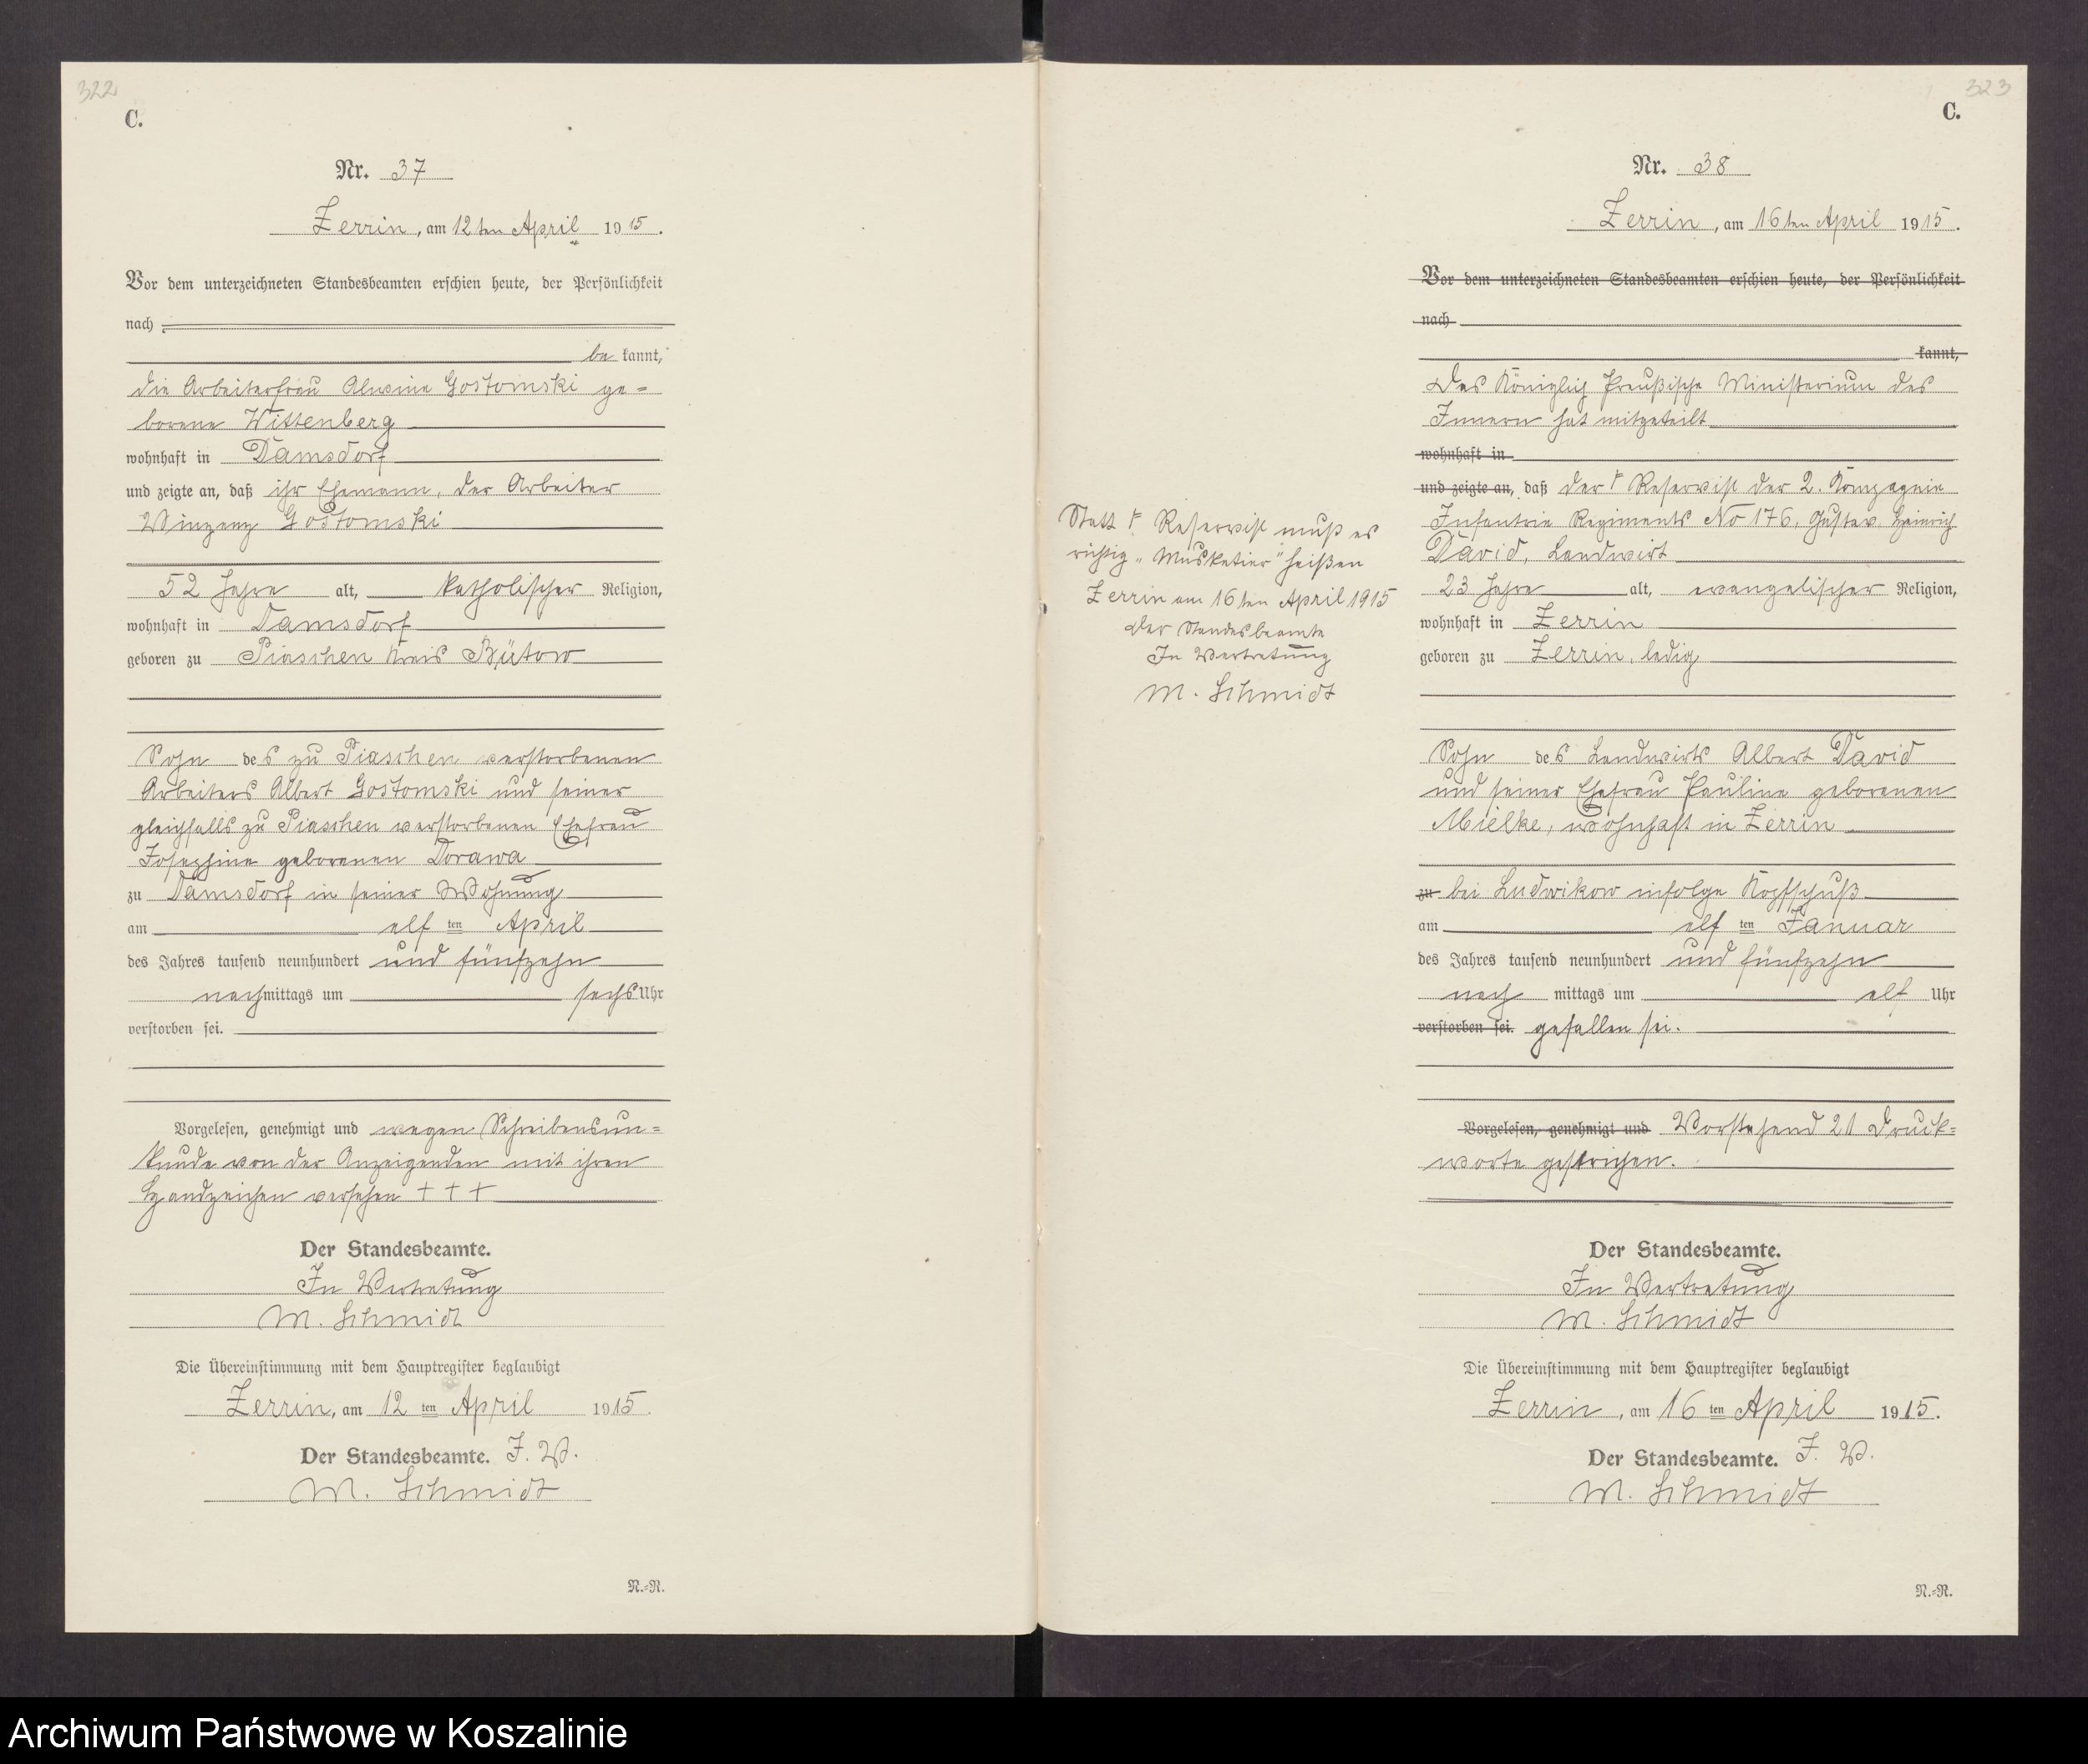 322
C.
Nr. 37
Zerrin, am 12ten April 1915.
Vor dem unterzeichneten Standesbeamten erschien heute, der Persönlichkeit
nach
be kannt,
die Arbeiterfrau Alwine Gostomski ge-
borene Wittenberg
wohnhaft in Damsdorf
und zeigte an, daß ihr Ehemann, der Arbeiter
Vinzenz Gostomski
52 Jahre alt, katholischer Religion,
wohnhaft in Damsdorf
geboren zu Piaschen Kreis Bütow
Sohn des zu Piaschen verstorbenen
Arbeiters Albert Gostomski und seiner
gleichfalls zu Piaschen verstorbenen Ehefrau
Josephine geborenen Dorawa
zu Damsdorf in seiner Wohnung
am elf ten April
des Jahres tausend neunhundert und fünfzehn
nachmittags um sechs Uhr
verstorben sei.
Vorgelesen, genehmigt und wegen Schreibensun-
kunde von der Anzeigenden mit ihren
Handzeichen versehen + + +
Der Standesbeamte.
In Vertretung
M. Schmidt
Die Übereinstimmung mit dem Hauptregister beglaubigt
Zerrin, am 12 ten April 1915.
Der Standesbeamte. J. V.
M. Schmidt
N.-R.
323
C.
Nr. 38
Zerrin, am 16ten April 1915.
Vor dem unterzeichneten Standesbeamten erschien heute, der Persönlichkeit
nach
kannt,
Das Königlich Preußische Ministerium des
Innern hat mitgeteilt
wohnhaft in
und zeigte an, daß der Reservist der 2. Kompagnie
Infantrie Regiments No 176, Gustav Heinrich
David, Landwirt
23 Jahre alt, evangelischer Religion,
wohnhaft in Zerrin
geboren zu Zerrin, ledig
Sohn des Landwirts Albert David
und seiner Ehefrau Pauline geborenen
Mielke, wohnhaft in Zerrin
zu bei Ludwikow infolge Kopfschuß
am elf ten Januar
des Jahres tausend neunhundert und fünfzehn
nach mittags um elf Uhr
verstorben sei. gefallen sei.
Vorgelesen, genehmigt und Vorstehend 21 Druck-
worte gestrichen.
Der Standesbeamte.
In Vertretung
M. Schmidt
Die Übereinstimmung mit dem Hauptregister beglaubigt
Zerrin, am 16 ten April 1915.
Der Standesbeamte. J. V.
M. Schmidt
N.-R.
Statt Reservist muß es
richtig "Musketier" heißen
Zerrin am 16ten April 1915
Der Standesbeamte
In Vertretung
M. Schmidt
Archiwum Państwowe w Koszalinie